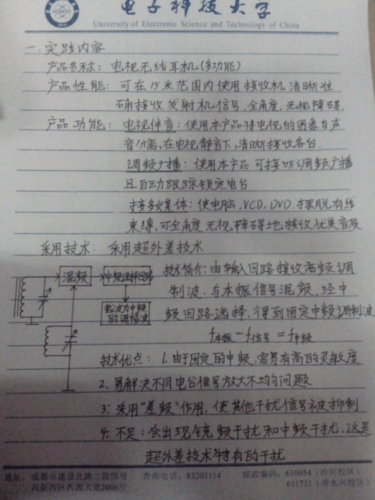 电子科技大学
University of Electronic Science and Technology of China
一.实践内容
产品名称: 电视无线耳机(多功能)
产品性能: 可在15米范围内使用接收机清晰准
确接收发射机信号,全角度,无视障碍.
产品功能: 电视伴音:使用本产品将电视的图象与声
音分离,在电视静音下,清晰接收各台.
调频广播:使用本产品可接收调频广播
且自动跟踪锁定电台
接多媒体:使电脑,VCD,DVD 摆脱有线
束缚,可全角度无视障碍地接收优美音乐
采用技术: 采用超外差技术
混频
中频选择回路
技术简介:由输入回路接收高频调
制波,与本振信号混频,经中
载波为中频
的调幅波
频回路选择,得到固定中频调制波
f本振 - f信号 = f中频
技术优点: 1.由于固定的中频,容易有高的灵敏度
2.易解决不同电台信号放大不均问题
3.采用"差频"作用,使其他干扰信号被抑制
4.不足:会出现镜频干扰和中频干扰,这是
超外差技术特有的干扰
地址:成都市建设北路二段四号
高新西区西源大道2006号
查询电话:83201114
邮政编码:610054(沙河校区)
611731(清水河校区)